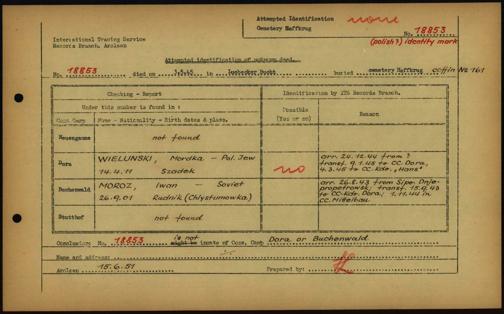 Attempted Identification none
Cemetery Haffkrug No. 18853
(polish?) identity mark
International Tracing Service
Records Branch, Arolsen
Attempted identification of unknown dead.
No. 18853 died on 3.5.45 in Luebecker Bucht buried cemetery Haffkrug coffin No 161
Checking - Report
Identification by ITS Records Branch.
Under this number is found in :
Possible (Yes or no)
Reason
Conc.Camp Name - Nationality - Birth dates & place.
Neuengamme not found
Dora WIELUNSKI, Mordka - Pol. Jew
14.4.11 Szadek
no
arr. 24.12.44 from ?
transf. 9.1.45 to CC. Dora,
4.3.45 to CC. kdo. "Hans"
Buchenwald MOROZ, Iwan - Soviet
26.9.01 Rudnik (Chlystumowka)
arr. 26.8.43 from Sipo Dnje-
propetrowsk; transf. 15.9.43
to CC-kdo. Dora; 1.11.44 in
CC. Mittelbau
Stutthof not found
Conclusion: No. 18853 is not might be inmate of Conc. Camp Dora or Buchenwald
Name and address:
Arolsen 15.6.51 Prepared by: